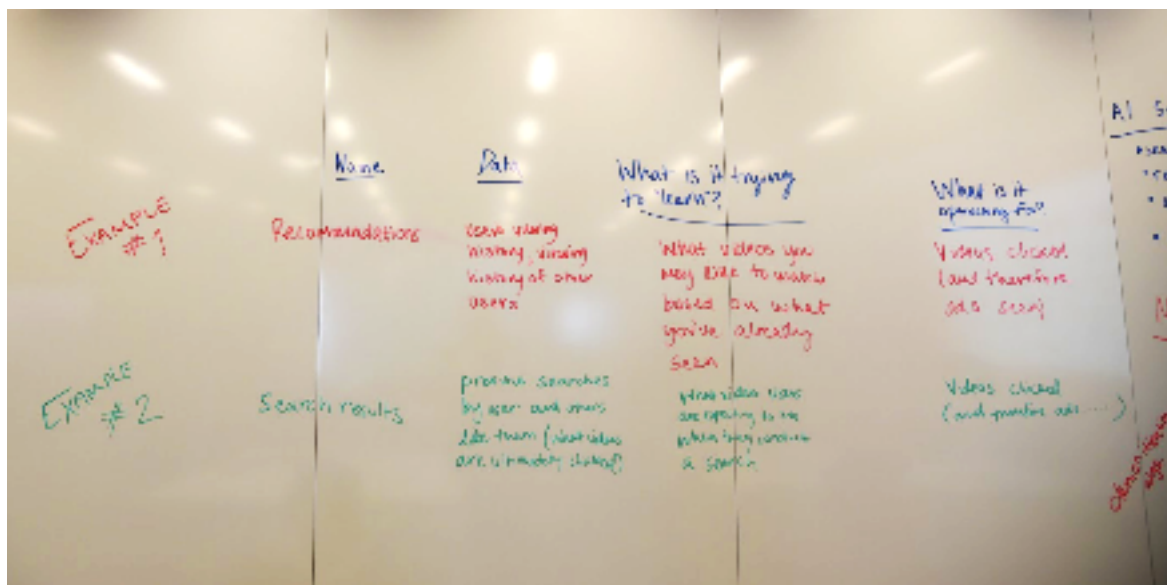 Name
Data
What is it trying
to "learn"?
What is it
optimizing for?
EXAMPLE
#1
Recommendations
users viewing
history, viewing
history of other
users
What videos you
may like to watch
based on what
you've already
seen
Videos clicked
(and therefore
ads seen)
EXAMPLE
#2
Search results
previous searches
by user and users
like them (what videos
are ultimately clicked)
What video users
are expecting to see
when they conduct
a search
Videos clicked
(and ads ....)
AI